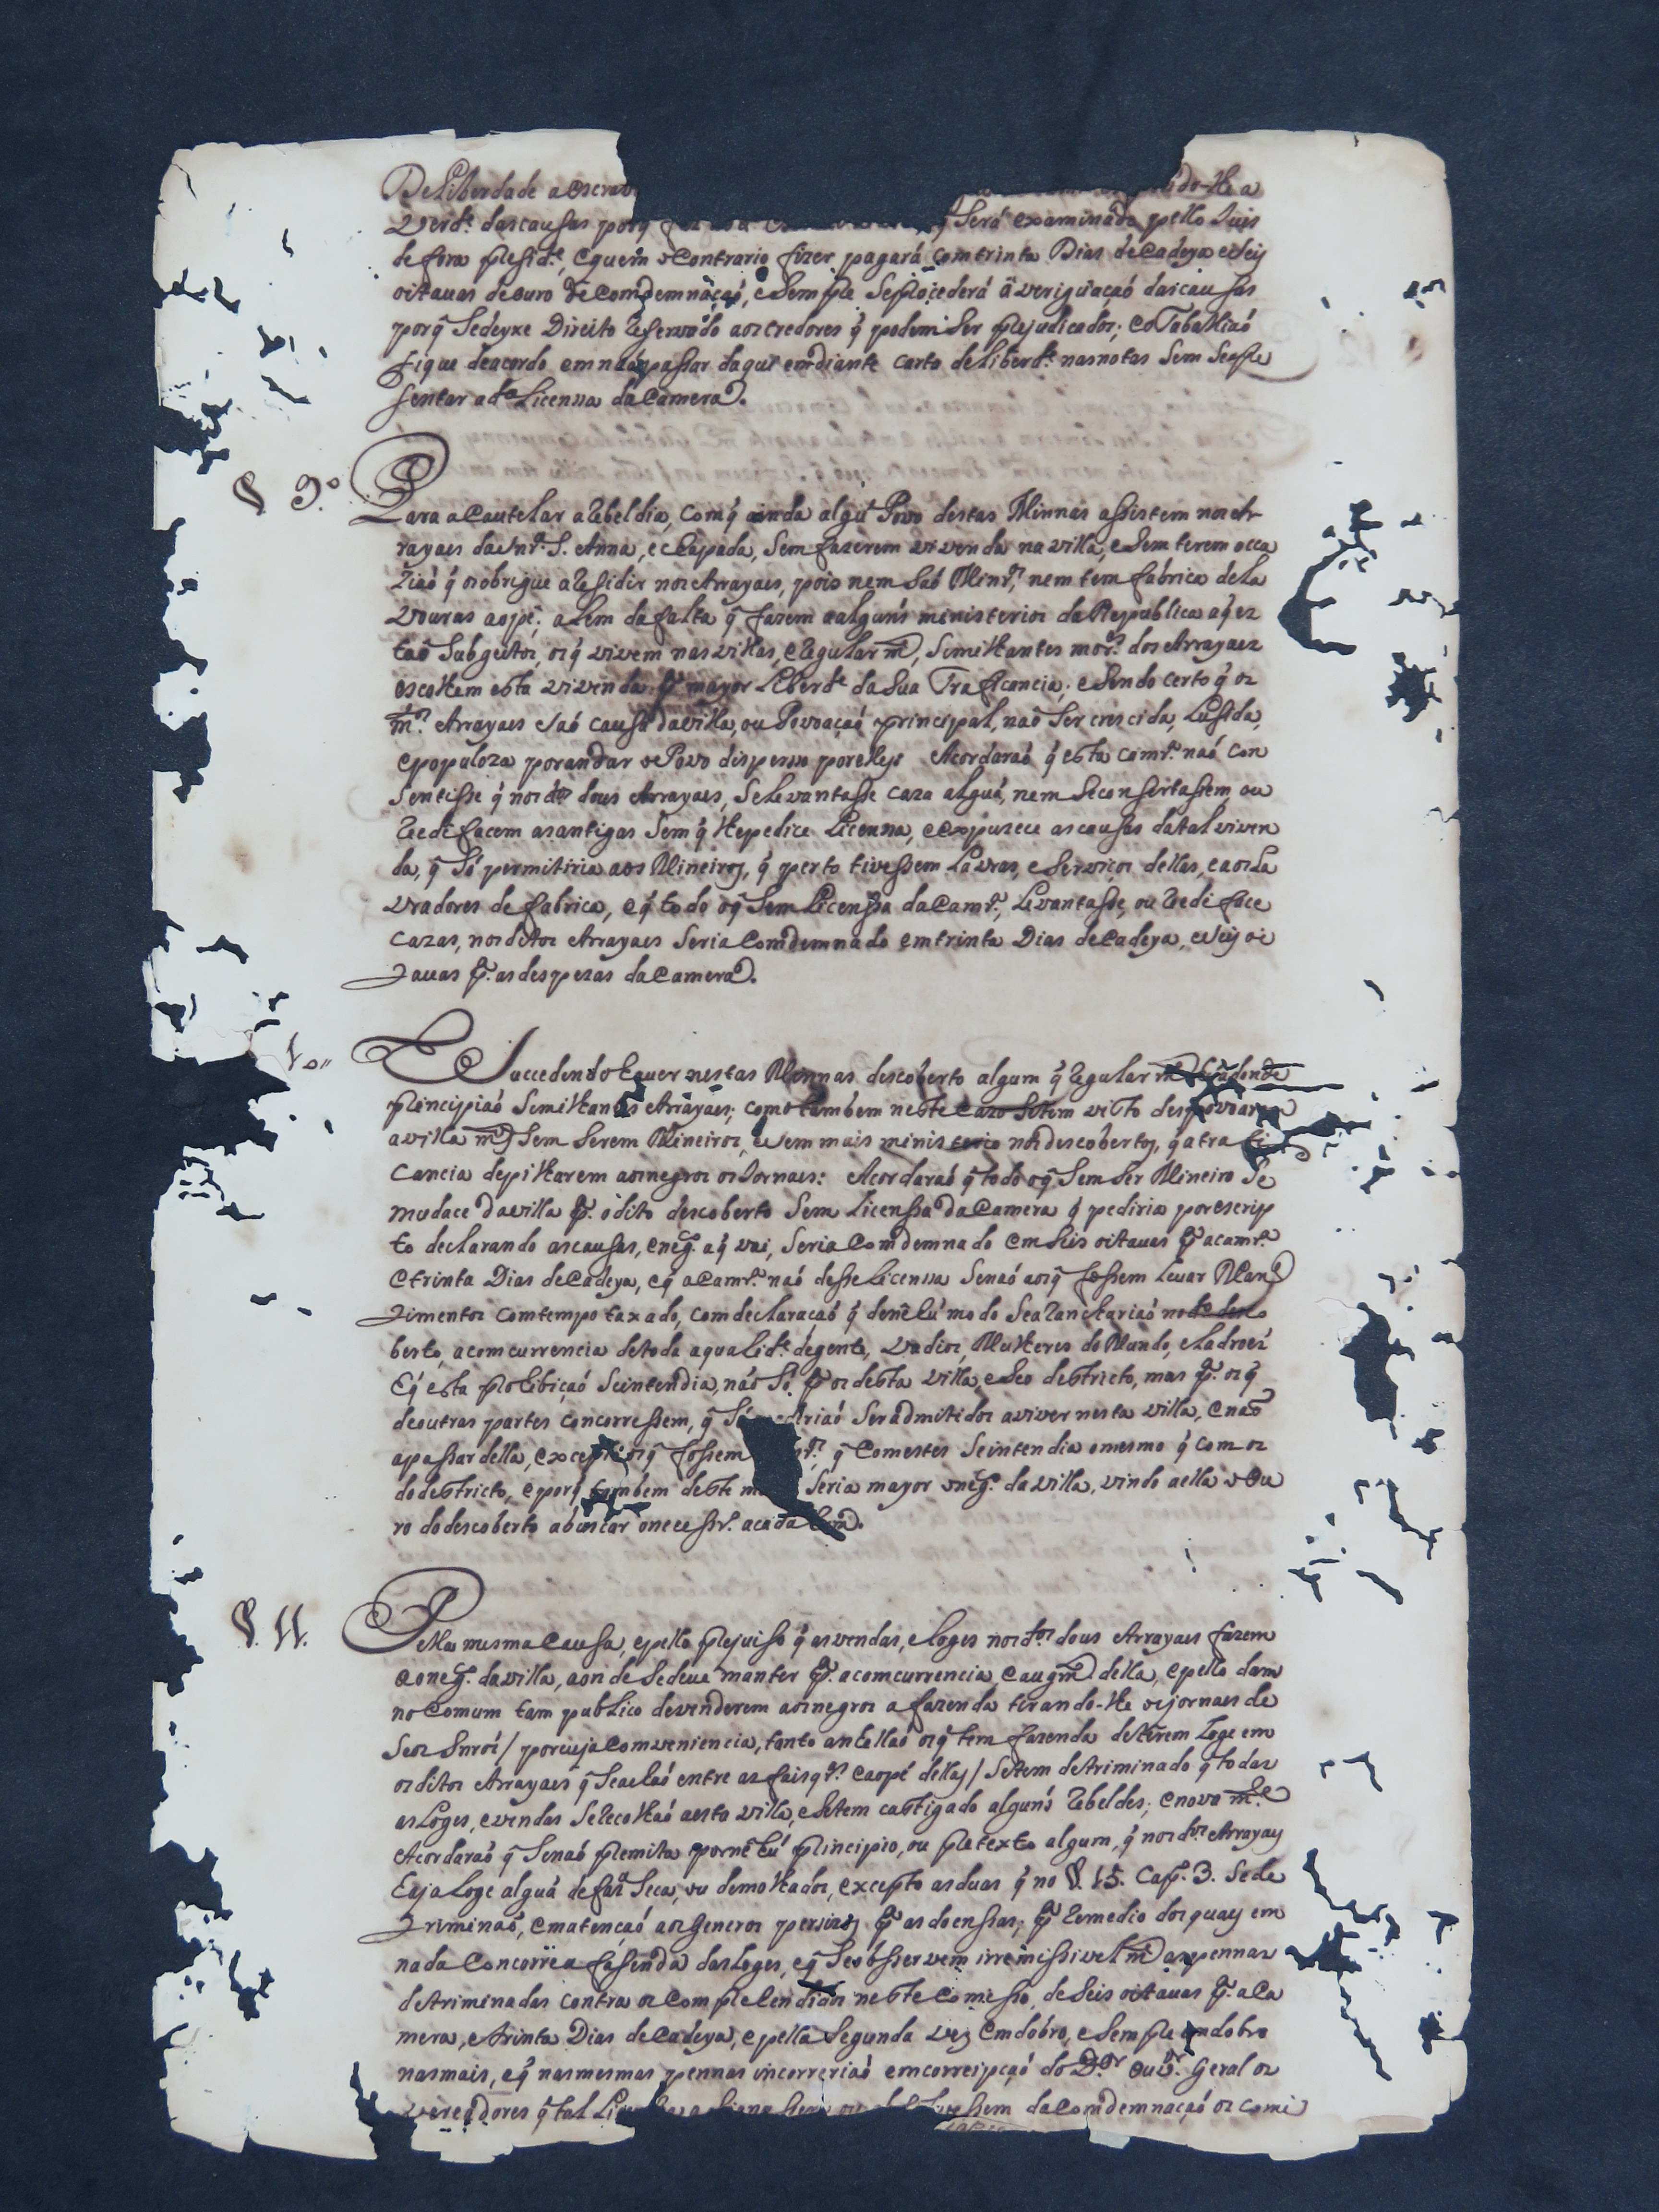 De Liberdade a escrav do-lhe a
Verd.e das cauſas porq̃ ſerá examinado pello Juis
de fora preſid.e, e quem o Contrario fizer pagará com trinta Dias de Cadeya e seis
oitavas de ouro de Comdemnaçaõ, e sempre se procederá á veriguaçaõ das cauſas
porq̃ se deyxe Direito reservado aos credores q̃ podem ser prejudicados; e o Taballiaõ
fique de acordo em naõ paſsar daqui em diante carta de Liberd.e nas notas sem se apre
ſentar a d.a Licenssa da Camera.
§ 9.o Para a Cautelar a rebeldia, com q̃ ainda algũ Povo destas Minnas aſsistem nos Ar
rayaes da Snr.a S. Anna, e Chapada, sem fazerem vivenda na villa, e sem terem occa
ziaõ q̃ os obrigue a reſidir nos Arrayaes, pois nem saõ Minr.os, nem tem fabrica de La
vouras ao pé; alem da falta q̃ fazem a alguns ministerios da Respublica a q̃ es
taõ subgeitos, os q̃ vivem nas villas, e regularm.te, similhantes mor.es dos Arrayaes
escolhem esta vivenda p.a mayor Liberd.e da sua Traficancia; e sendo certo q̃ os
m.os Arrayaes saõ causa da villa, ou Povoaçaõ principal, naõ ser crescida, Luſida,
e populoza por andar o Povo disperso por elles Acordaraõ q̃ esta camr.a naõ con
sentiſse q̃ nos d.os dous Arrayaes, se levantaſse caza algũa, nem se consertaſsem, ou
reedificem as antigas sem q̃ lhe pedice Licenssa, e expuzece as cauſas da tal viven
da, q̃ só permitiria aos Mineiros, q̃ perto tiveſsem Lavras, e serviços dellas, e aos La
vradores de fabrica, e q̃ todo o q̃ sem Licenſsa da Camr.a, Levantaſse, ou reedifice
cazas, nos ditos Arrayaes seria Comdemnado em trinta Dias de Cadeya, e seis oi
tavas p.a as despezas da Camera.
10 Succedendo haver nestas Minnas descoberto algum q̃ regularm.te
principiaõ similhantes Arrayaes; como tambem neste cazo se tem visto despovoar
a villa m.tos sem serem Mineiros, e sem mais ministerio nos descobertos, q̃ a trafi
cancia de pilharem aos negros os Jornaes: Acordaraõ q̃ todo o q̃ sem ser Mineiro se
mudace da villa p.a o dito descoberto sem Licenſsa da Camera q̃ pediria por escrip
to declarando as cauſas, e neg.o a q̃ vai, seria Comdemnado em seis oitavas p.a a camr.a
e trinta Dias de Cadeya, e q̃ a Camr.a naõ deſse Licenssa senaõ aos q̃ foſsem Levar Man
timentos com tempo taxado, com declaraçaõ q̃ de nẽhũ modo se aranchariaõ no d.o desco
berto, a comcurrencia de toda a qualid.e de gente, vadios, Mulheres do Mundo, e Ladroes
E q̃ esta prohibiçaõ se intendia, naõ só, p.a os desta villa, e seo destricto, mas p.a os q̃
de outras partes concorreſsem, q̃ só ser admitidos a viver nesta villa, e naõ
a paſsar della, excepto os q̃ foſsem q̃ Com estes se intendia o mesmo q̃ com os
do destricto, e porq̃ tambem deste seria mayor o neg.o da villa, vindo a ella o Ou
ro do descoberto a buscar o neceſsr.o a cada hum.
§. 11. Pella mesma Cauſa, e pello prejuiſo q̃ as vendas, e loges nos d.os dous Arrayaes fazem
ao neg.o da villa, aonde se deve manter p.a a comcurrencia, e augm.to della, e pello dam
no Comum tam publico de venderem aos negros a fazenda tirando-lhe os jornaes de
seos Snrós / por cuja Comveniencia, tanto anhellaõ os q̃ tem fazenda de terem loge em
os ditos Arrayaes q̃ se achaõ entre as faisq.ras e ao pé dellas / se tem detriminado q̃ todas
as Loges, e vendas se recolhaõ a esta villa, e se tem castigado alguns rebeldes; e novam.te
Acordaraõ q̃ se naõ premita por nẽhũ principio, ou pretexto algum, q̃ nos d.os Arrayaes
haja Loge algũa de faz.da seca, ou de molhados, excepto as duas q̃ no §. 15. Cap. 3. se de
triminaõ, em atençaõ aos generos p.a as doenſsas; p.a remedio dos quaes em
nada Concorre a faſenda das Loges, e q̃ se obſservem irremiſsivelm.te as pennas
detriminadas contra os Comprehendidos neste Comiſso, de seis oitavas p.a a Ca
mera, e trinta Dias de Cadeya, e pella segunda vez em dobro, e sempre em dobro
nas mais, e q̃ nas mesmas pennas incorreriaõ em correipçaõ do D.or Ouv.or Geral os
vereadores q̃ tal da Comdemnaçaõ os comi